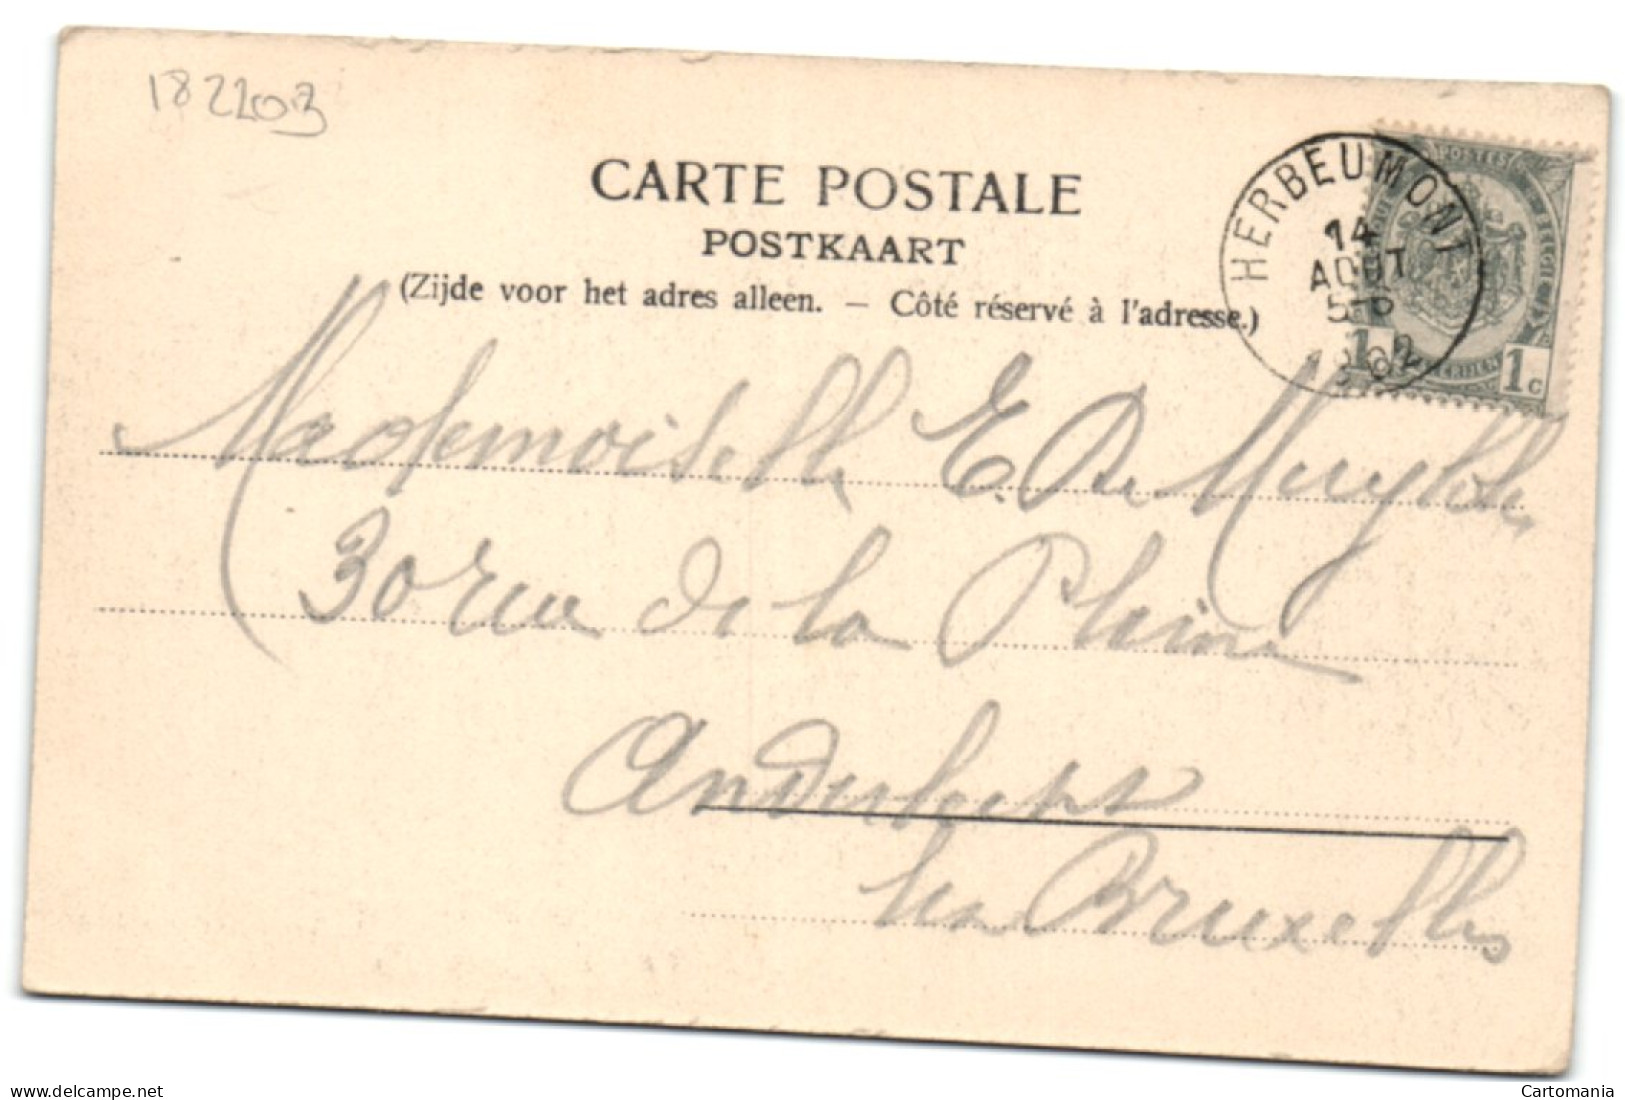 182203
CARTE POSTALE
POSTKAART
(Zijde voor het adres alleen. — Côté réservé à l'adresse.)
HERBEUMONT
14
AOUT
5-6
1902
POSTES
1c
Mademoiselle E. De
30 rue de la Plaine
Anderlecht
lez Bruxelles
delcampe.net
Cartomania